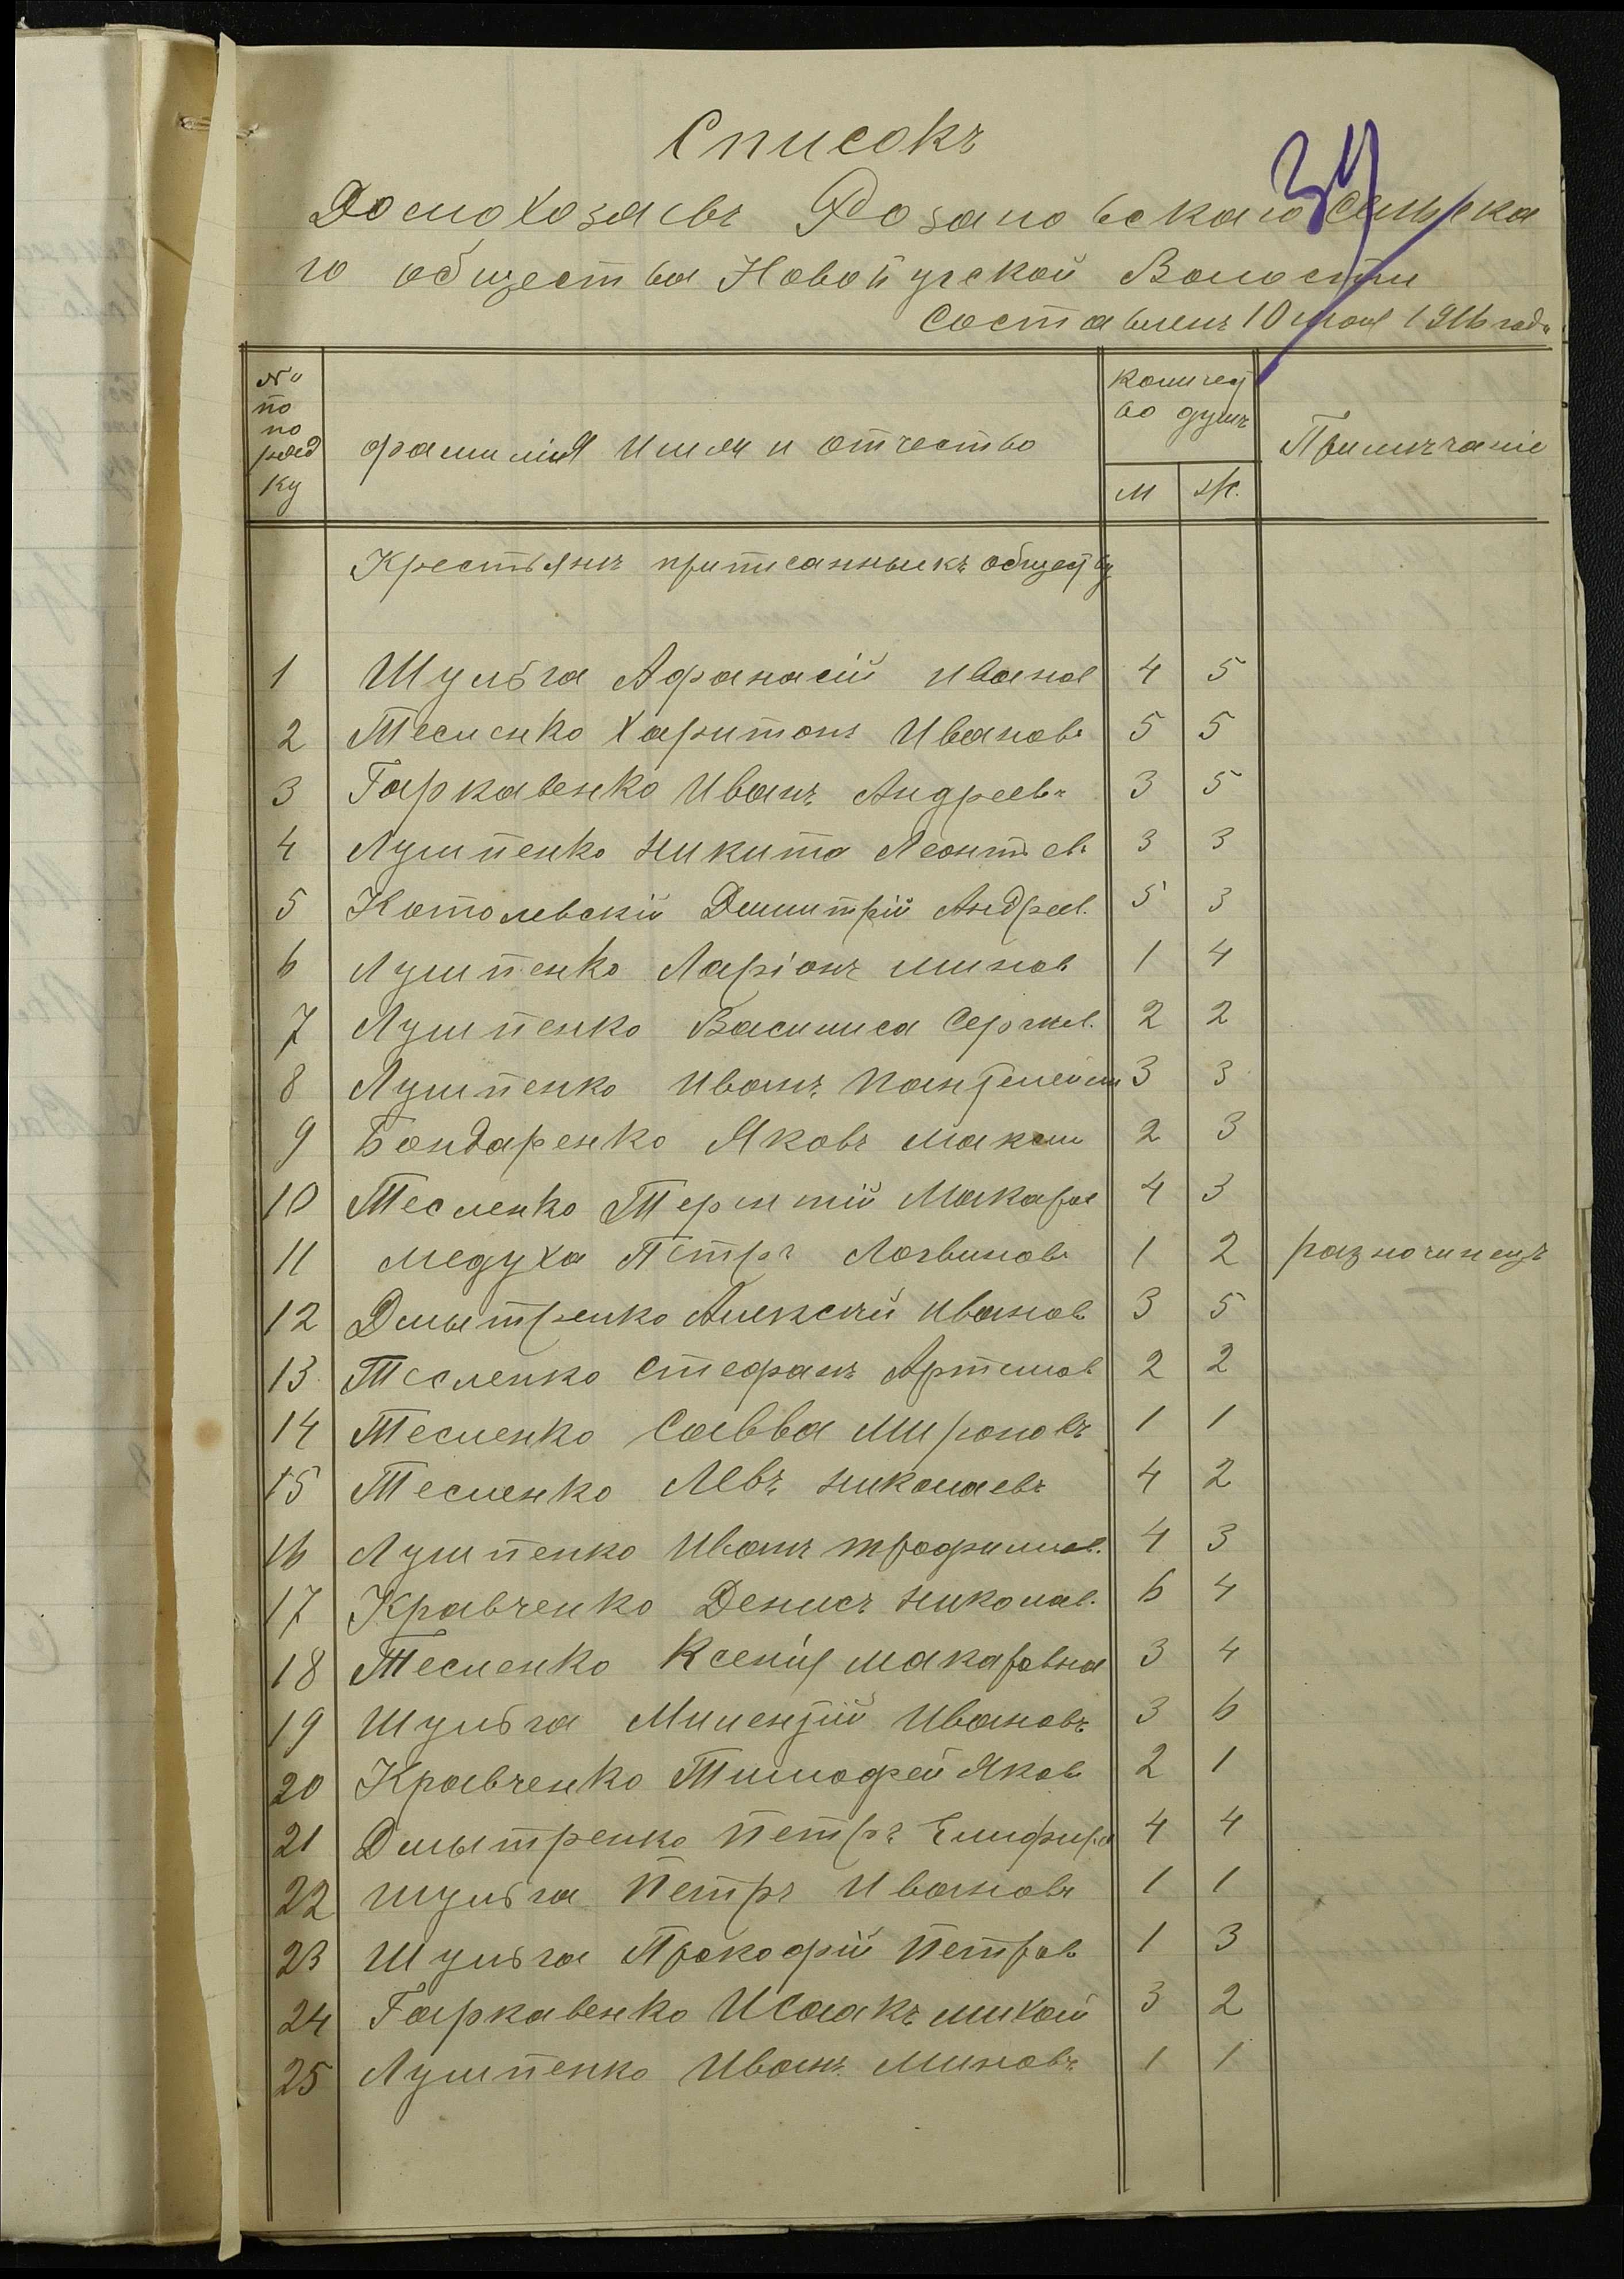 Списокъ
34
Домохозяевъ Розановскаго Сельска
го общества Новобугской Волости
Составленъ 10 1916 года
№ по по ряд ку
фамилія Имя и отчество
количест во душъ
Примѣчаніе
м ж.
Крестьянъ приписанныхъ обществу
1 Шульга Афанасій Иванов 4 5
2 Тесленко Харитонъ Ивановъ 5 5
3 Гаркавенко Иванъ Андреевъ 3 5
4 Лушпенко Никита Леонтьев 3 3
5 Котолевскій Димитрій Андреев. 5 3
6 Лушпенко Ларіонъ Минов 1 4
7 Лушпенко Василиса Сергѣев. 2 2
8 Лушпенко Иванъ Пантелейм 3 3
9 Бондаренко Яковъ Максим 2 3
10 Тесленко Терентій Макаров 4 3
11 Медуха Петръ Логвиновъ 1 2 разночинецъ
12 Дмытренко Алексѣй Иванов 3 5
13 Тесленко Стефанъ Артемов 2 2
14 Тесленко Савва Мироновъ 1 1
15 Тесленко Левъ Николаевъ 4 2
16 Лушпенко Иванъ Трофимов. 4 3
17 Кравченко Денисъ Николаев. 6 4
18 Тесленко Ксенія Макаровна 3 4
19 Шульга Милентій Ивановъ 3 6
20 Кравченко Тимофей Яков 2 1
21 Дмытренко Петръ 4 4
22 Шульга Петръ Ивановъ 1 1
23 Шульга Прокофій Петров 1 3
24 Гаркавенко Исаакъ Михай 3 2
25 Лушпенко Иванъ Миновъ 1 1